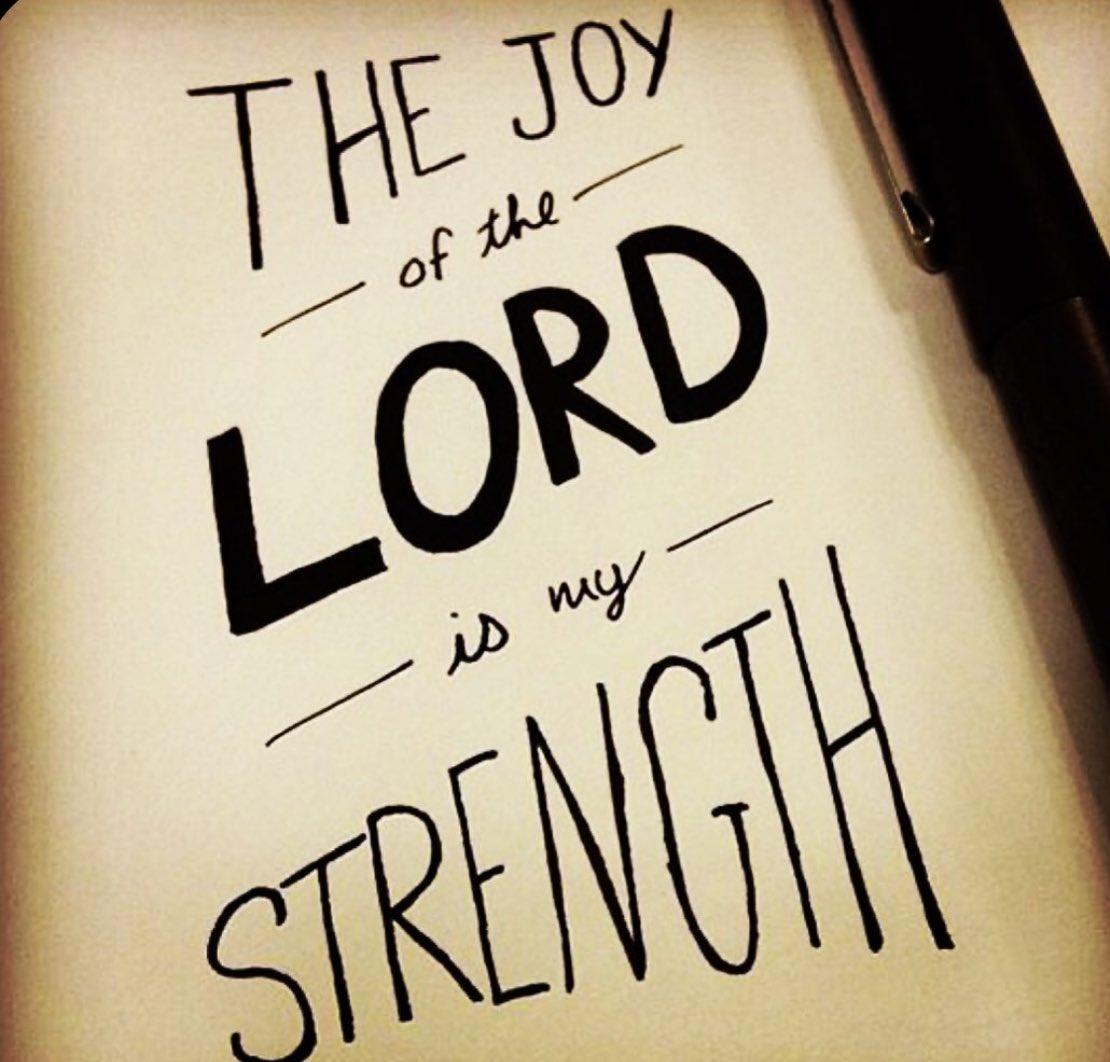 THE JOY
of the
LORD
is my
STRENGTH